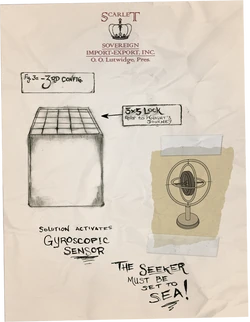 SCARLET
SOVEREIGN
IMPORT-EXPORT, INC.
O. O. Lutwidge, Pres.
5x5 LOCK
SOLUTION ACTIVATES
GYROSCOPIC
SENSOR
THE SEEKER
MUST BE
SET TO
SEA!